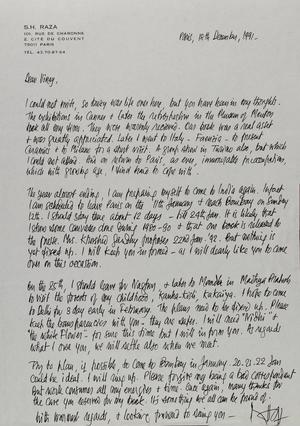 S.H. RAZA
101, RUE DE CHARONNE
2, CITÉ DU COUVENT
75011 PARIS
TEL. 43.70.87.64
Paris, 19th December, 1991.
Dear Vinay,
I could not write, so heavy was life over here, but you have been in my thoughts.
The exhibitions in Cannes & later the retrospective in the Museum of Menton
took all my time. They were warmly received. Our book was a real asset
& was greatly appreciated. Later I went to Italy - Faenza - to present
Ceramics & to Milano for a short visit. A group show in Torino also, but which
I could not attend. But on return to Paris, as ever, innumerable preoccupations,
which with growing age, I find hard to cope with.
The year almost ending. I am preparing myself to come to India again. Infact
I am scheduled to leave Paris on the 11th January & reach Bombay on Sunday
12th. I should stay there about 12 days - till 24th Jan. It is likely that
I show some canvases done during 1980-90 & that our book is released to
the press. Mrs. Khorshed Gandhy proposes 22nd Jan. 92. But nothing is
yet fixed up. I will keep you informed - as I will dearly like you to come
over on this occasion.
On the 25th, I should leave for Nagpur & later to Mandla in Madhya Pradesh
to visit the forests of my childhood, Kanha-Kisli, Kakaiya. I hope to come
to Delhi by 3 day early in February. The plans need to be firmed up. Please
keep the transparencies with you - they are safer. I will need "
" &
"the White Flower" - for some time but I will inform you. As regards
what I owe you, we will settle also when we meet.
Try to plan if possible, to come to Bombay in January. 20-21-22 Jan
could be ideal. I will ring up. Please forgive my being a bad correspondent
But work consumes all my energies & time. Once again, many thanks for
the care you deserve on my book. It's something we all can be proud of.
With warmest regards, & looking forward to seeing you -